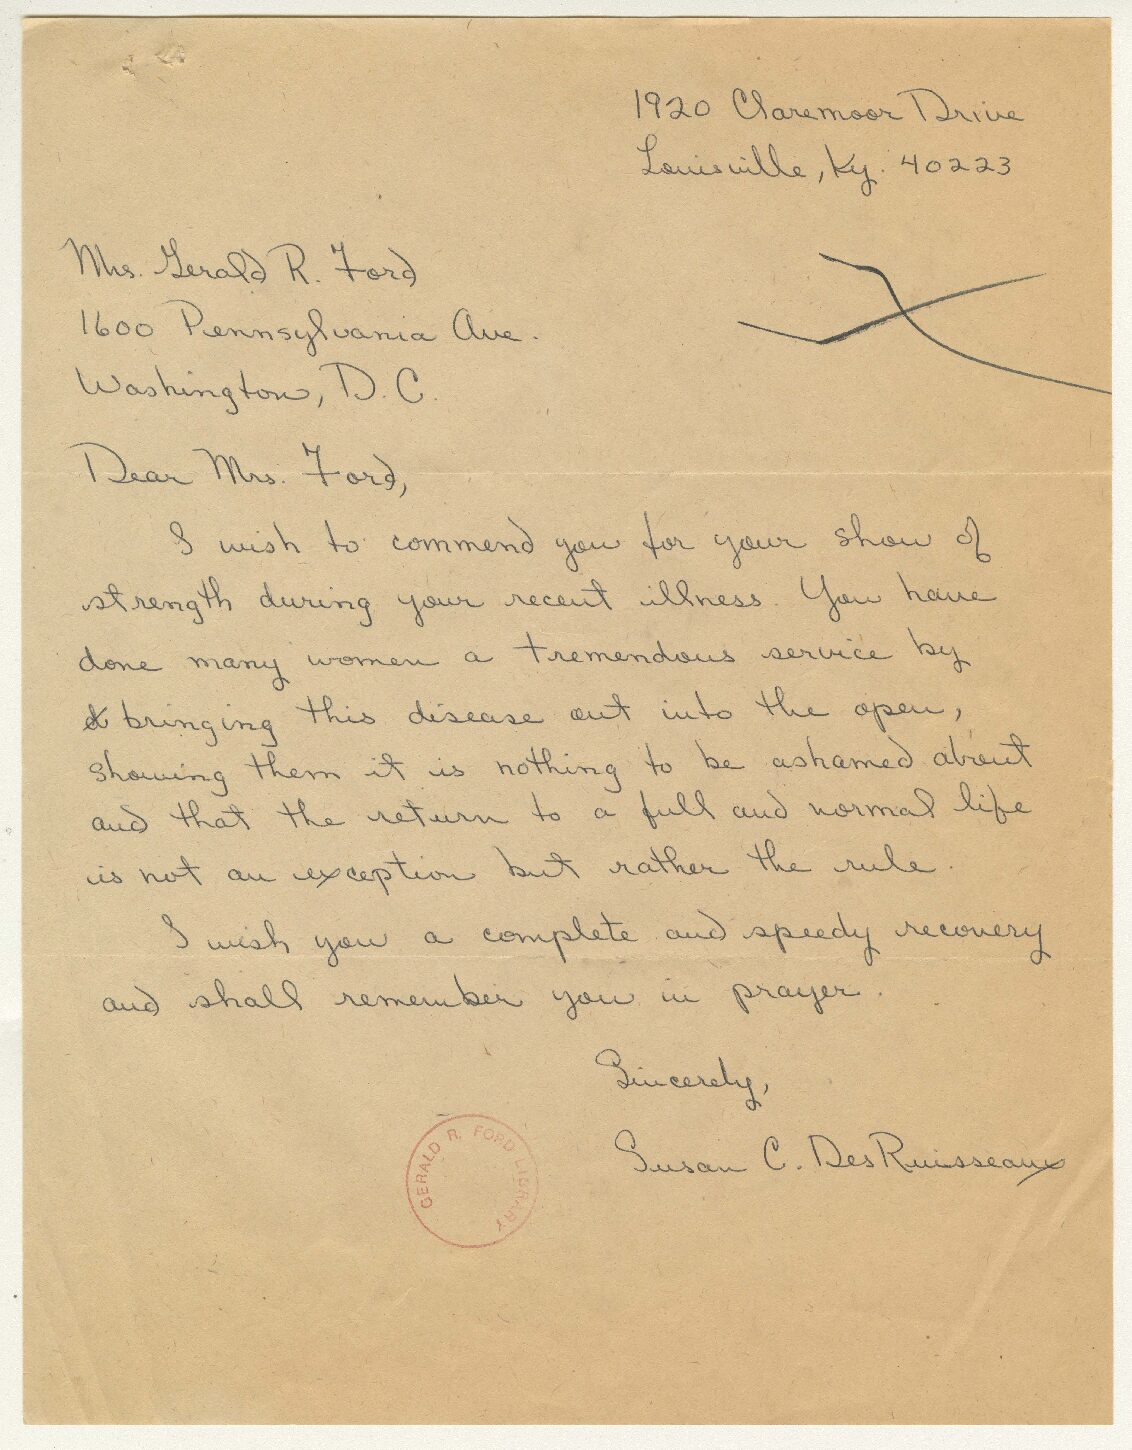 1920 Claremoor Drive
Louisville, Ky. 40223
Mrs. Gerald R. Ford
1600 Pennsylvania Ave.
Washington, D.C.
Dear Mrs. Ford,
I wish to commend you for your show of
strength during your recent illness. You have
done many women a tremendous service by
bringing this disease out into the open,
showing them it is nothing to be ashamed about
and that the return to a full and normal life
is not an exception but rather the rule.
I wish you a complete and speedy recovery
and shall remember you in prayer.
Sincerely,
Susan C. DesRuisseaux
GERALD R. FORD LIBRARY